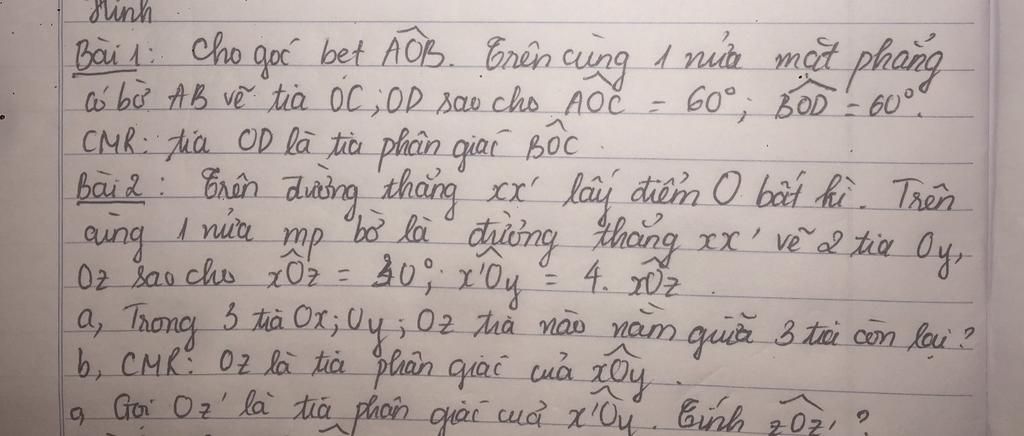 Hình
Bài 1: Cho góc bẹt AOB. Trên cùng 1 nửa mặt phẳng
có bờ AB vẽ tia OC; OD sao cho AOC = 60°; BOD = 60°.
CMR: tia OD là tia phân giác BOC
Bài 2: Trên đường thẳng xx' lấy điểm O bất kì. Trên
cùng 1 nửa mp bờ là đường thẳng xx' vẽ 2 tia Oy,
Oz sao cho xOz = 30°; x'Oy = 4. xOz.
a, Trong 3 tia Ox; Oy; Oz tia nào nằm giữa 3 tia còn lại?
b, CMR: Oz là tia phân giác của xOy.
Gọi Oz' là tia phân giác của x'Oy. Tính zOz'?